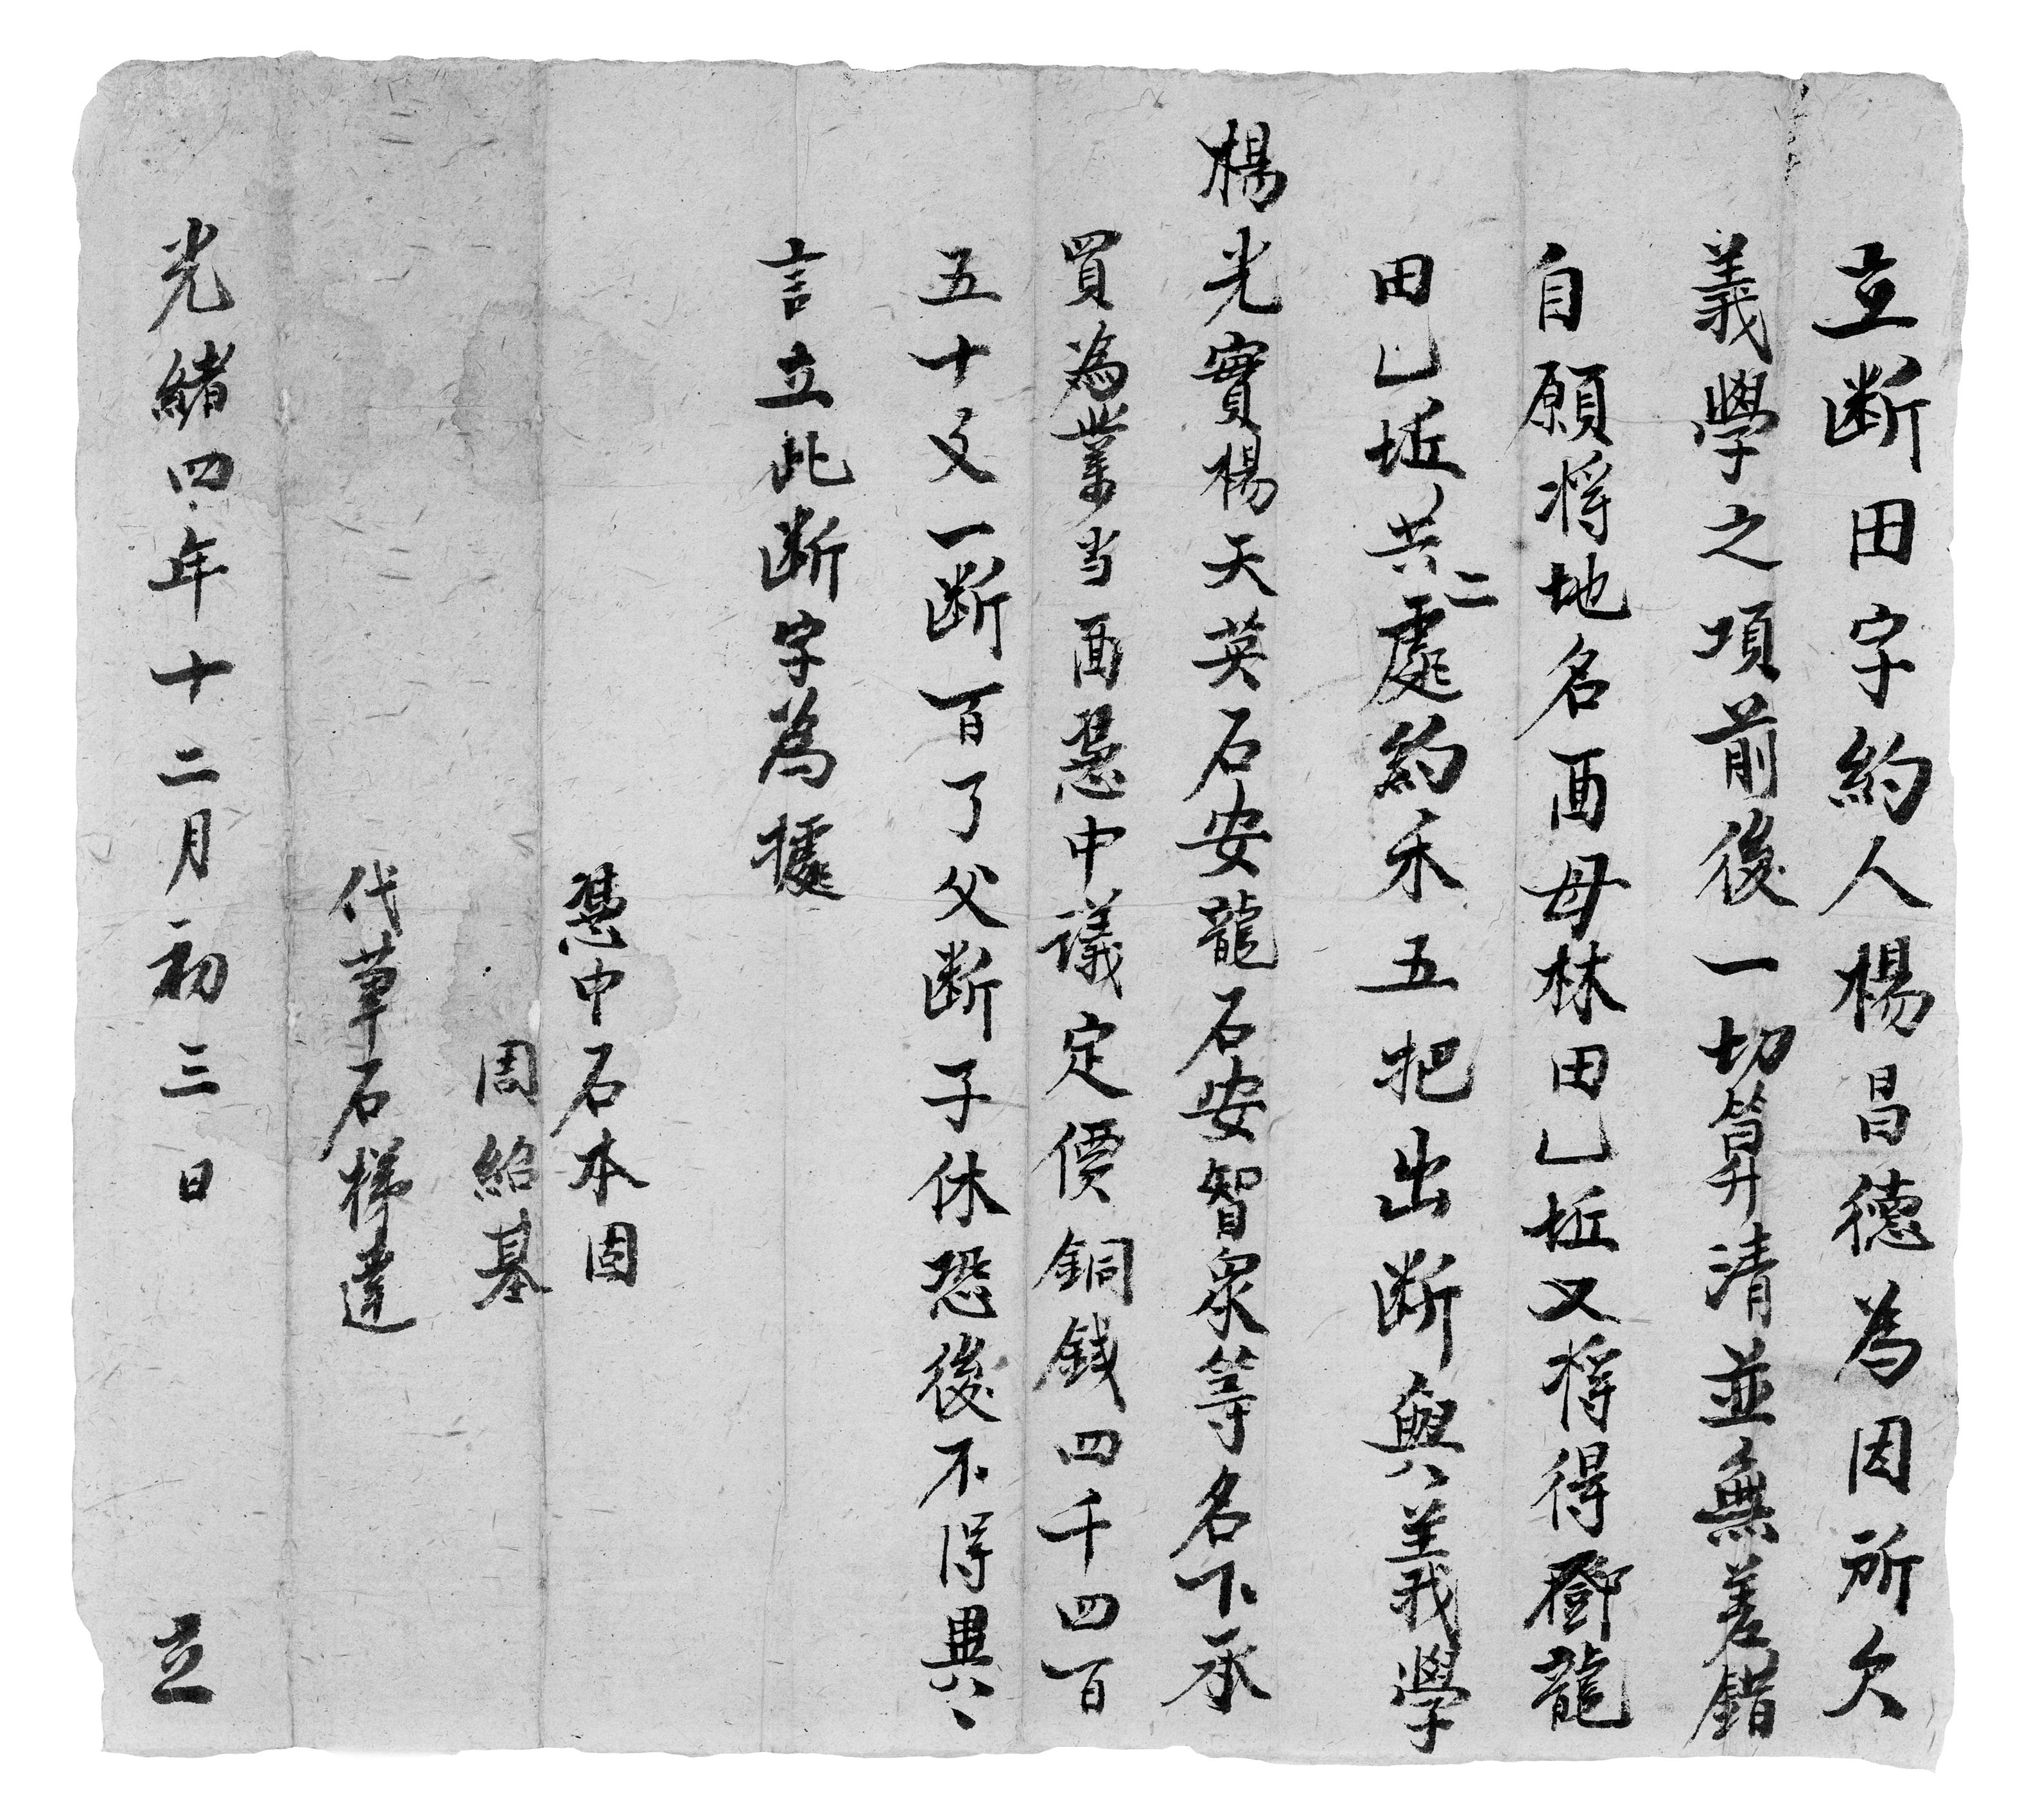 立断田字約人楊昌德為因所欠
義學之項前後一切算清並無差錯
自願将地名酉母林田乚坵又將得鄧龍
田乚坵共二處約禾五把出断與義學
楊光實楊天英石安龍石安智衆等名下承
買為業当面憑中議定價銅錢四千四百
五十文一断百了父断子休恐後不得異
言立此断字為據
憑中石本固
周紹基
代草石梯達
光緒四年十二月初三日 立